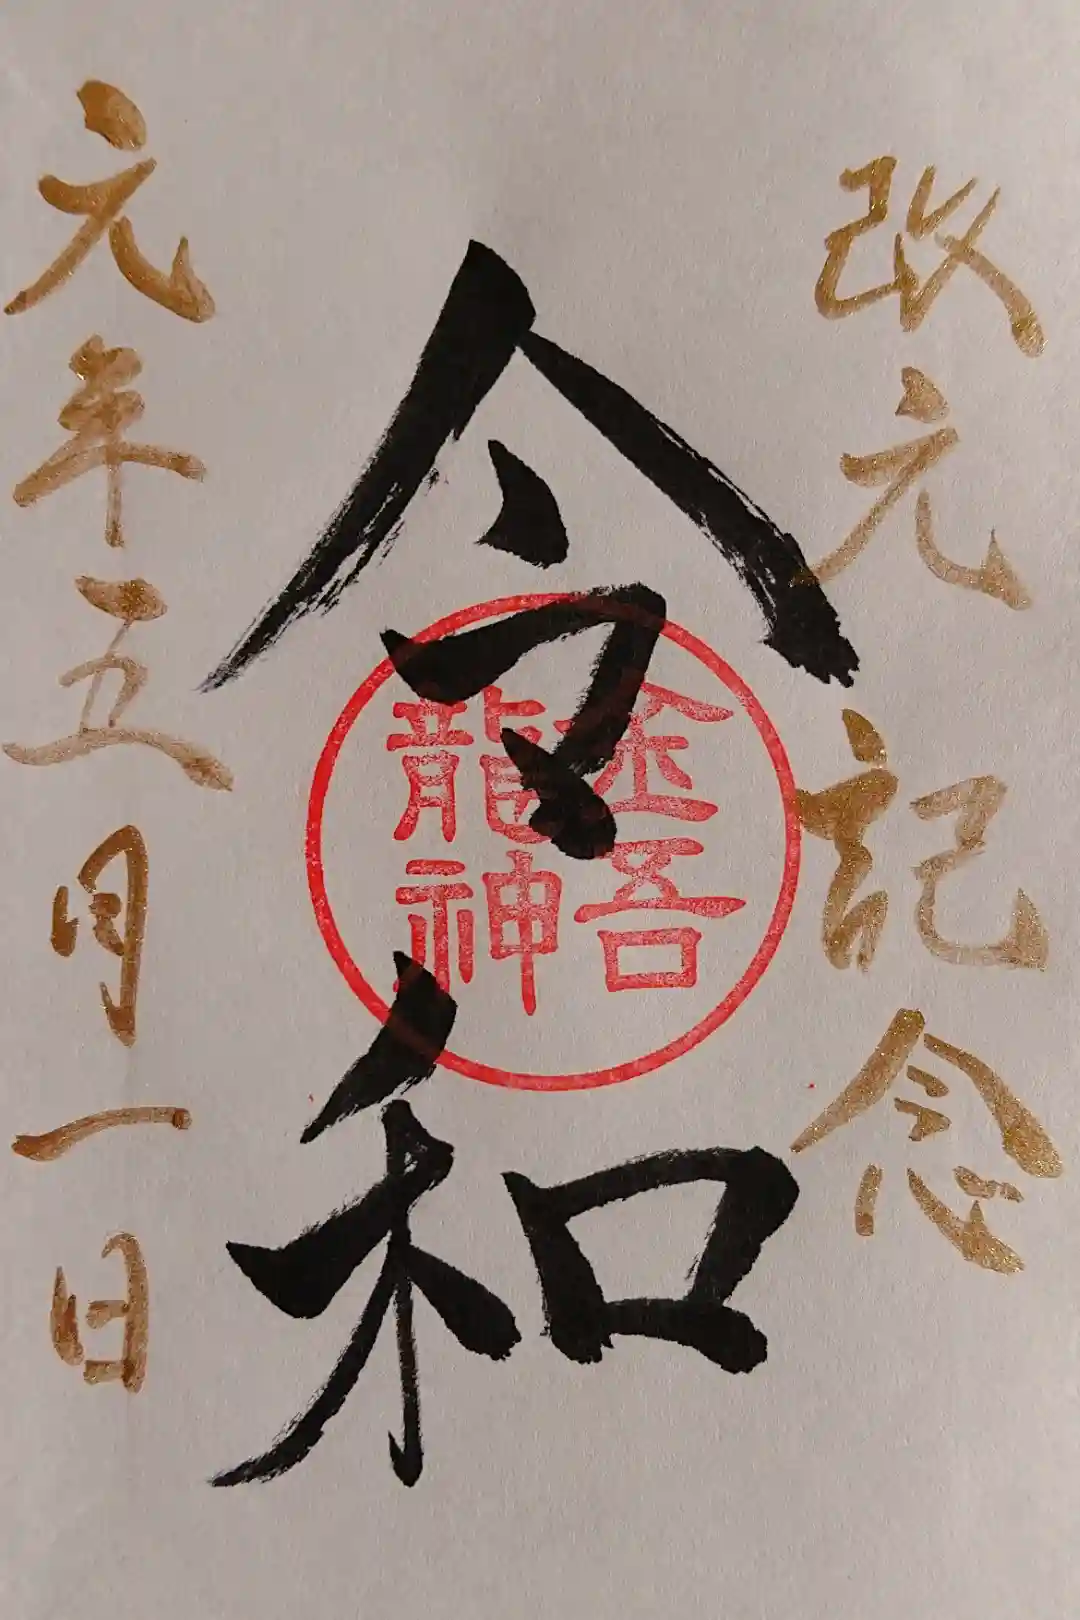 改元記念
令和
金吾
龍神
元年五月一日